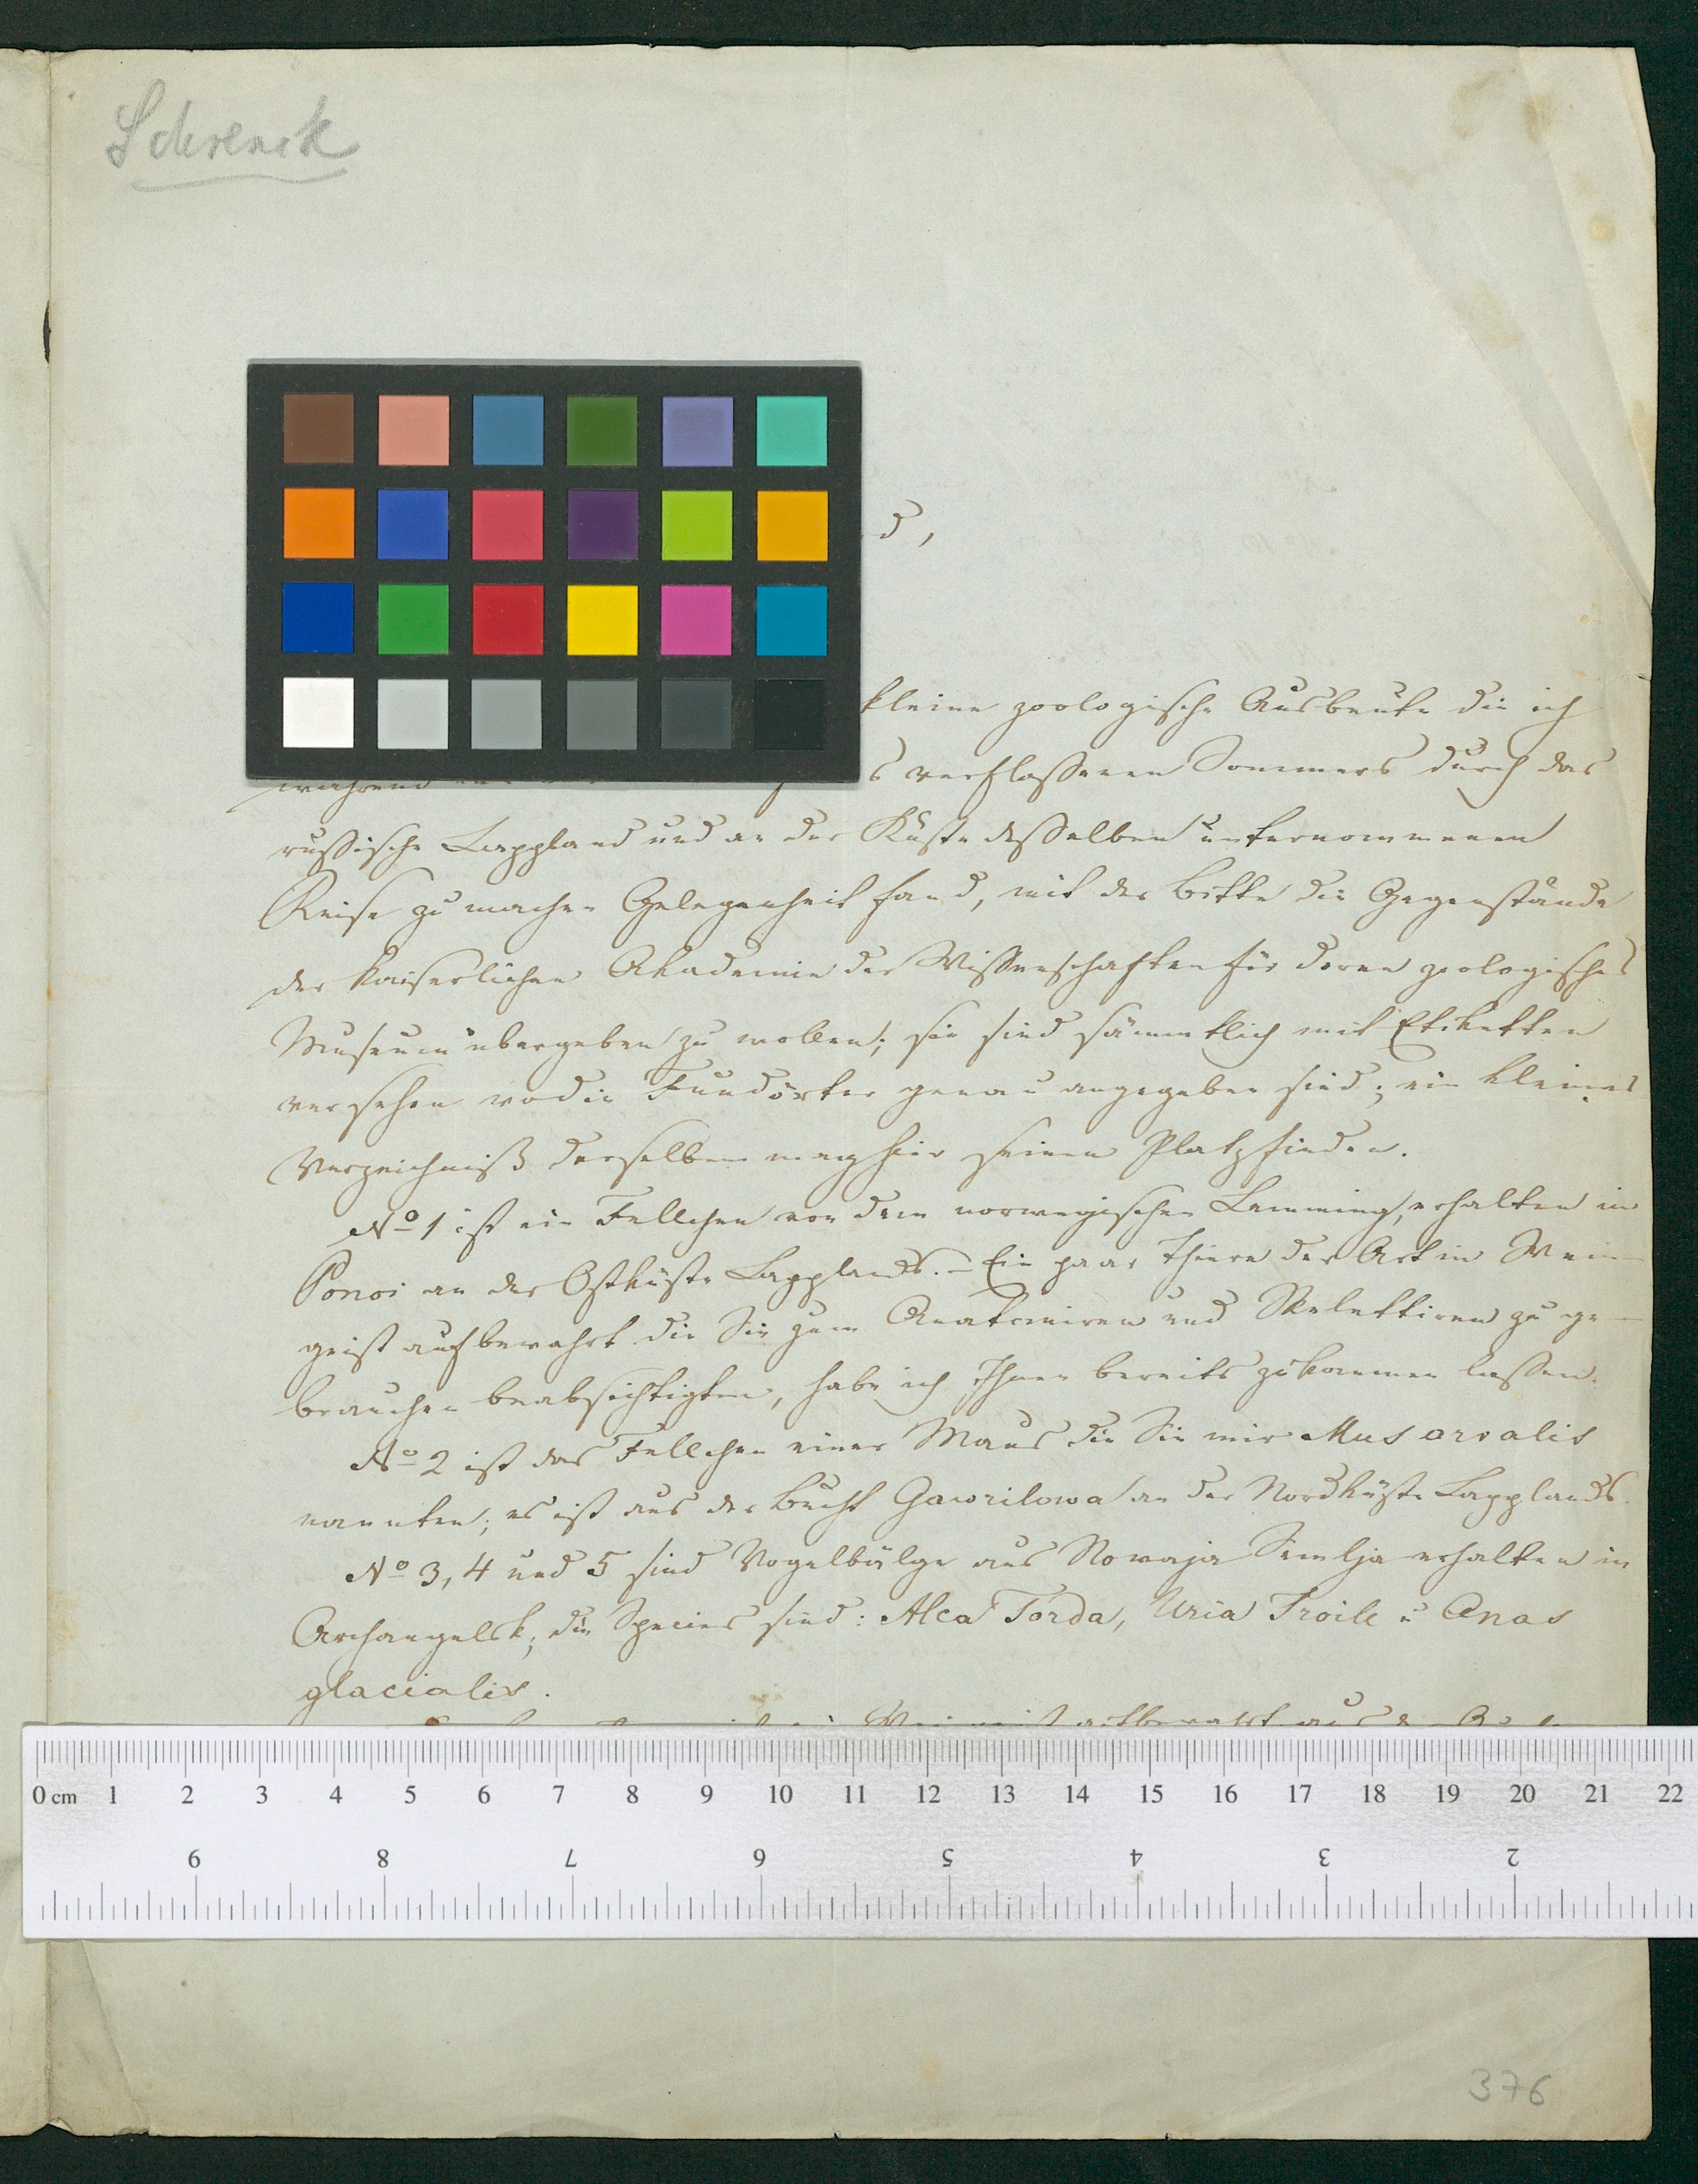 Schrenck
d,
kleine zoologische Ausbeute die ich
während s verflossenen Sommers durch das
russische Lappland und an der Küste desselben unternommenen
Reise zu machen Gelegenheit fand, mit der Bitte die Gegenstände
der Kaiserlichen Akademie der Wissenschaften für deren zoologisches
Museum übergeben zu wollen; sie sind sämmtlich mit Etiketten
versehen wo die Fundörter genau angegeben sind; ein kleines
Verzeichniß derselben mag hier seinen Platz finden.
No 1 ist ein Fellchen von dem norwegischen Lemming, erhalten in
Ponoi an der Ostküste Lapplands. – Ein paar Thiere der Art in Wein-
geist aufbewahrt die Sie zum Anatomiren und Skelettiren zu ge-
brauchen beabsichtigten, habe ich Ihnen bereits zukommen lassen.
No 2 ist das Fellchen einer Maus die Sie mir Mus arvalis
nannten; es ist aus der Bucht Gawrilowa an der Nordküste Lapplands.
No 3, 4 und 5 sind Vogelbälge aus Nowaja Semlja erhalten in
Archangelsk; die Species sind: Alca Torda, Uria Troile u Anas
glacialis.
0 cm 1 2 3 4 5 6 7 8 9 10 11 12 13 14 15 16 17 18 19 20 21 22
9 8 7 6 5 4 3 2
376